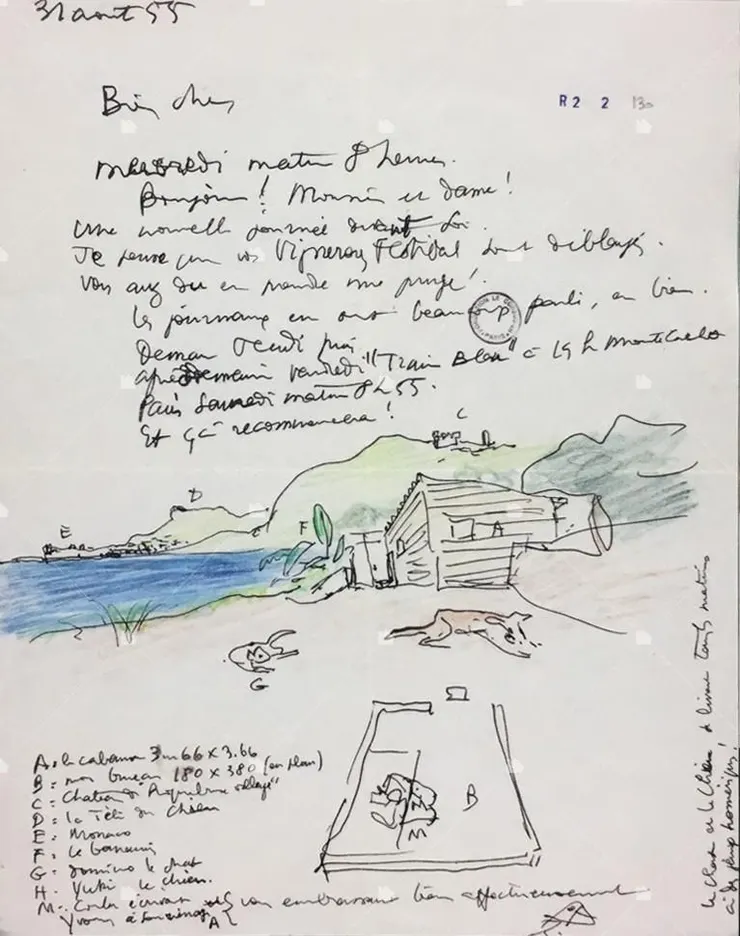 31 aout 55
R2 2 130
Bien chers
mercredi matin 8 heures.
Bonjour! Monsieur et dame!
Une nouvelle journée devant soi.
Je pense que vos Vigneron Festival sont déblayés.
Vous avez du en prendre une purge!
Les journaux en ont beaucoup parlé, en bien.
Demain Jeudi puis
après demain vendredi "Train Bleu" à 19 h Monte Carlo
Paris Samedi matin 8 h 55.
Et ça recommencera!
C
D
E
F
A
G
B
M
A = la cabanon 3m66 x 3.66
B = mon bureau 180 x 380 (en plan)
C = Chateau de Roquebrune village"
D = la Tête du Chien
E = Monaco
F = le bananier
G = Domino le chat
H = Yuki le chien.
M = Corbu écrivant
Yvonne à son ménage A
vous embrassent bien affectueusement
le Chat et le Chien se livrent tous les matins
à des jeux homériques!